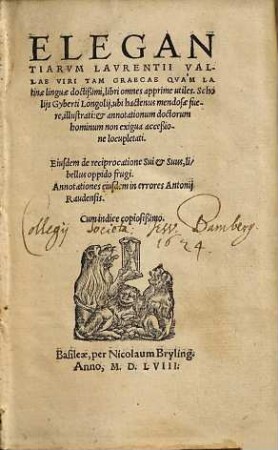 ELEGAN
TIARVM LAVRENTII VAL-
LAE VIRI TAM GRAECAE QVAM LA
tinæ linguæ doctißimi, libri omnes apprime utiles. Scho
lijs Gyberti Longolij, ubi hactenus mendosæ fue
re, illustrati: & annotationum doctorum
hominum non exigua accessio-
ne locupletati.
Eiusdem de reciprocatione Sui & Suus, li-
bellus oppido frugi.
Annotationes eiusdem in errores Antonij
Raudensis.
Cum indice copiosißimo.
Collegij Societa: Bamberg.
1624.
Basileæ, per Nicolaum Bryling.
Anno, M. D. LVIII.